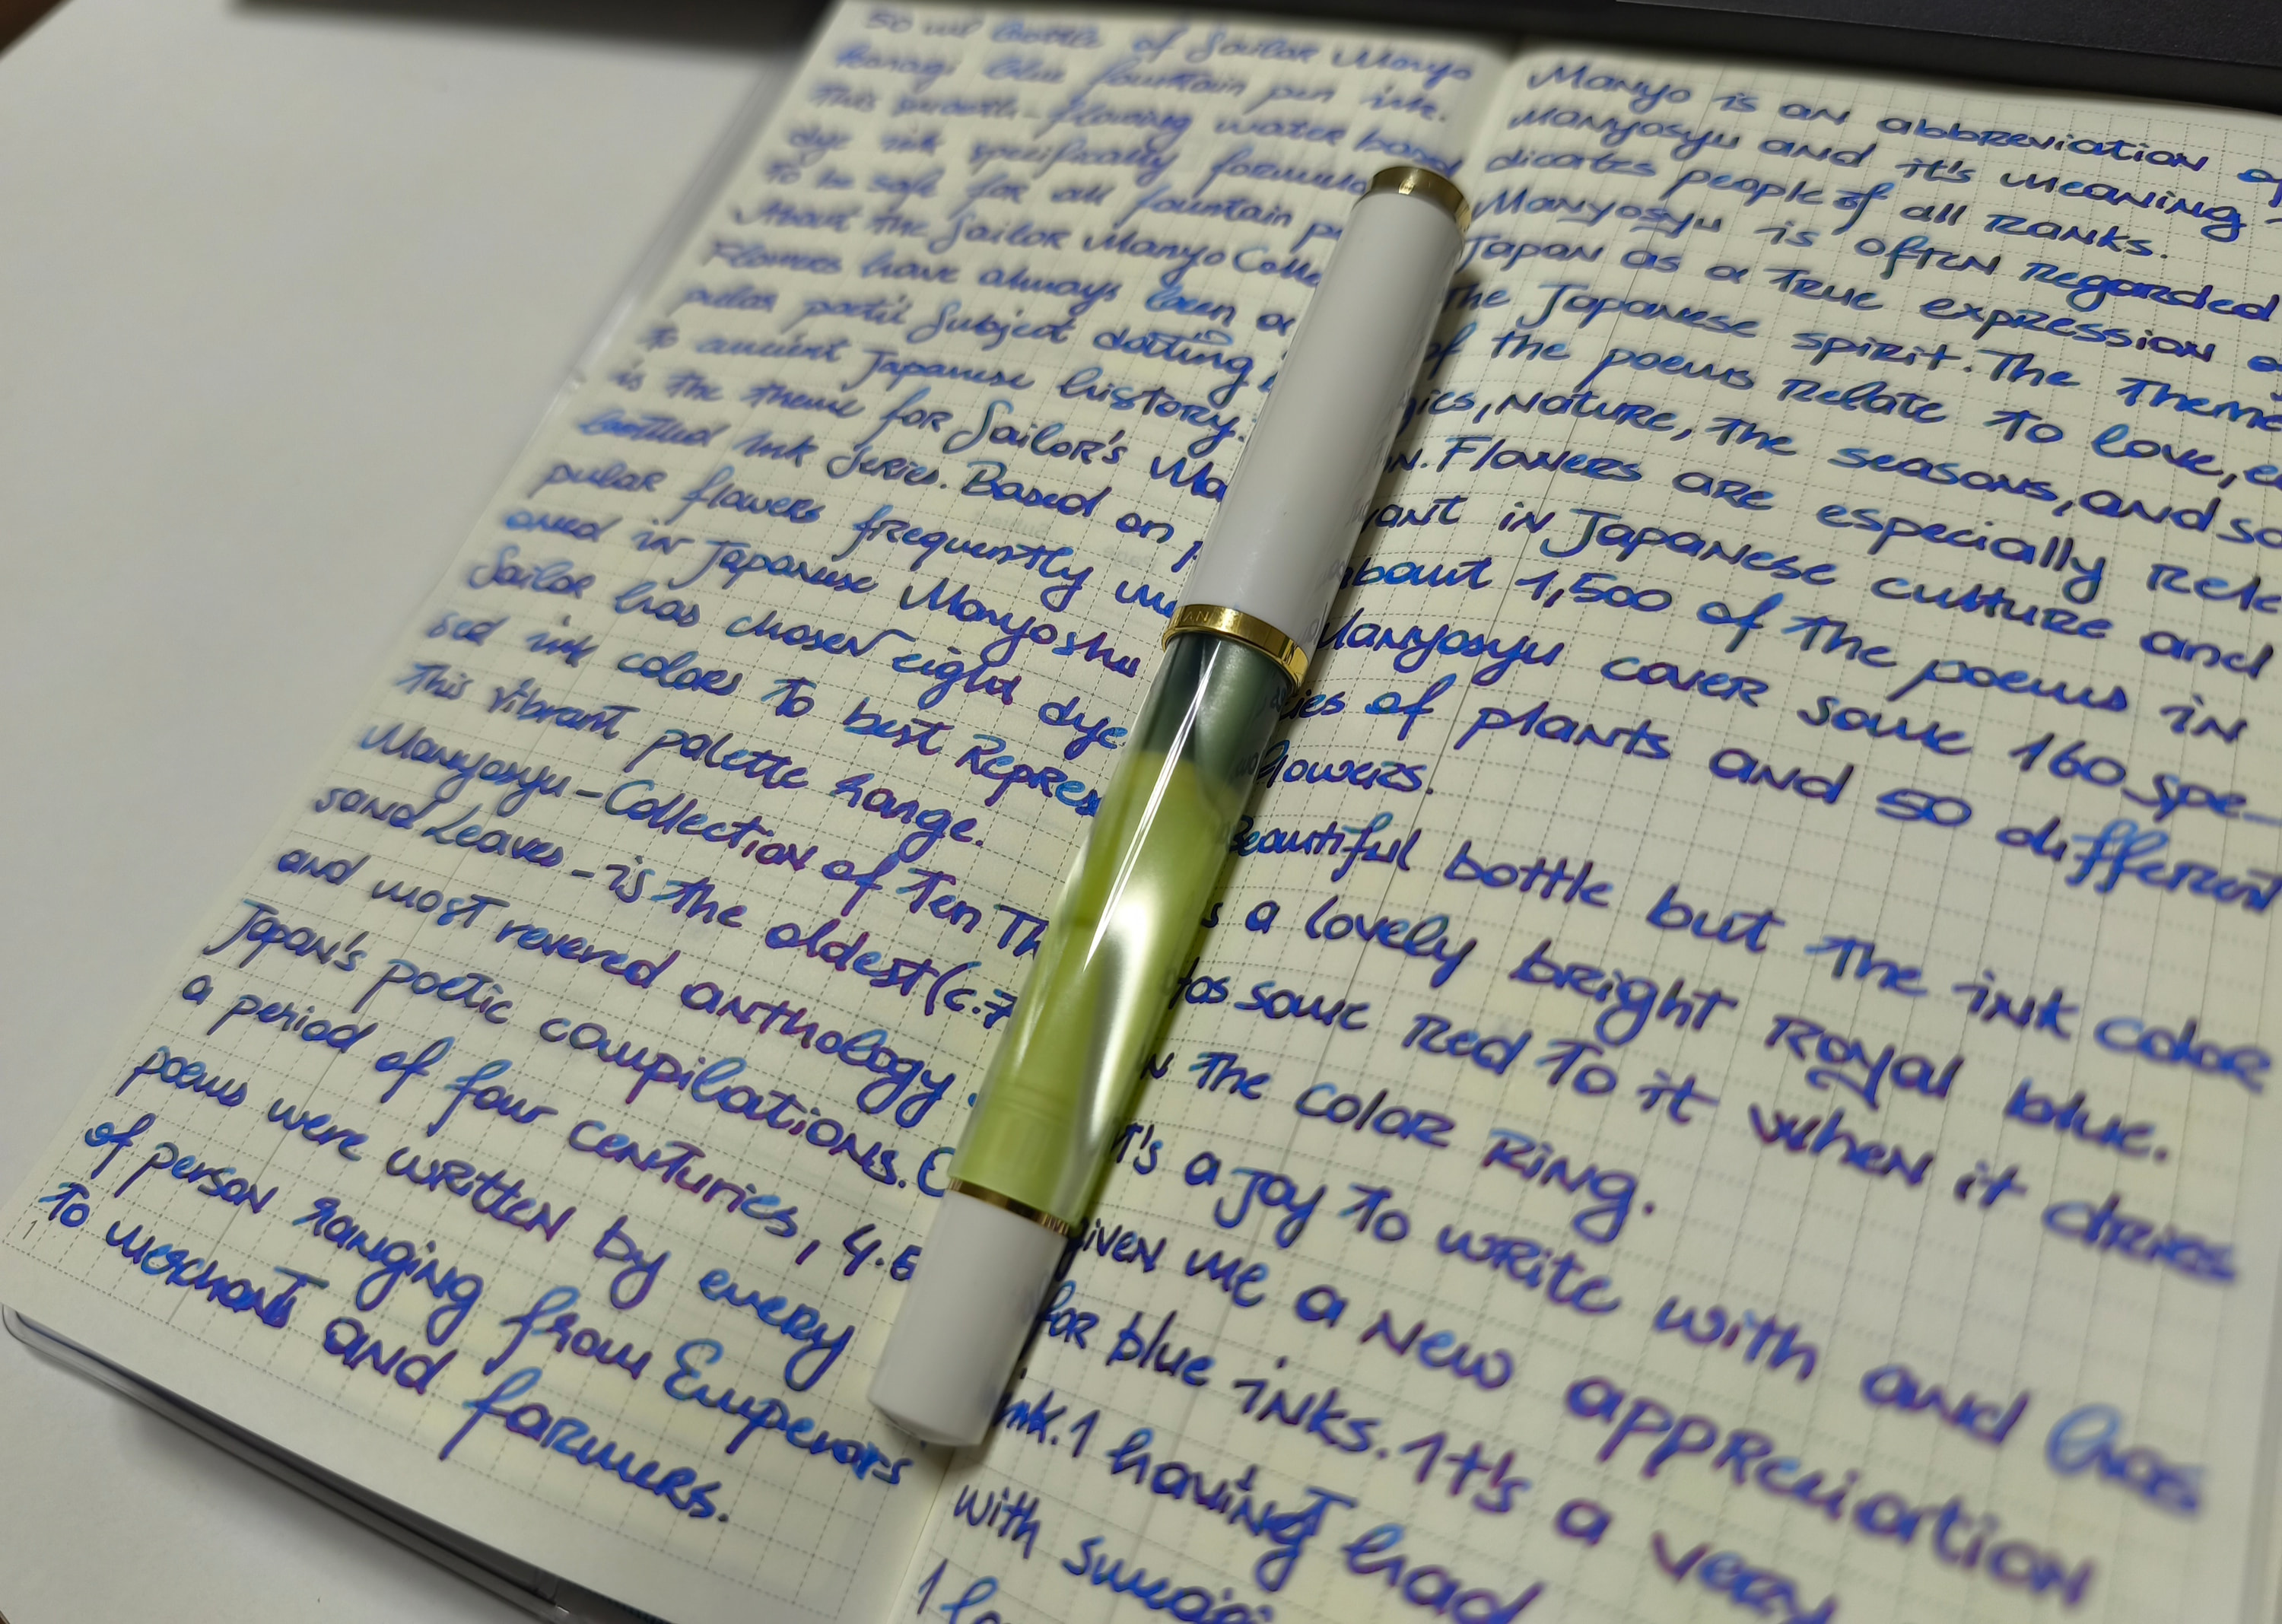 50 ml bottle of Sailor Manyo
Konagi blue fountain pen ink.
This smooth-flowing water based
dye ink specifically formula
to be safe for all fountain pe
About the Sailor Manyo Colle
Flowers have always been a
pular poetic subject dating
to ancient Japanese history.
is the theme for Sailor's Ma
bottled ink series. Based on p
pular flowers frequently me
oned in Japanese Manyoshu
Sailor has chosen eight dye
sed ink colors to best Repres
This vibrant palette range.
Manyosyu-Collection of Ten Th
sand Leaves-is the oldest (c.7
and most revered anthology
Japan's poetic compilations. C
a period of four centuries, 4.5
poems were written by every
of person ranging from Emperors
to merchants and farmers.
Manyo is an abbreviation of
Manyosyu and it's meaning
dicates people of all Ranks.
Manyosyu is often Regarded
Japan as a true expression of
the Japanese spirit. The Theme
of the poems Relate to love, e
gies, Nature, the seasons, and so
on. Flowers are especially Rele
vant in Japanese culture and
about 1,500 of the poems in
Manyosyu cover some 160 spe-
cies of plants and 50 different
flowers.
Beautiful bottle but the ink color
s a lovely bright Royal blue.
Has some Red to it when it dries
n the color Ring.
T's a joy to write with and has
given me a New appreciation
for blue inks. 1t's a very
ink. 1 having had
with
1